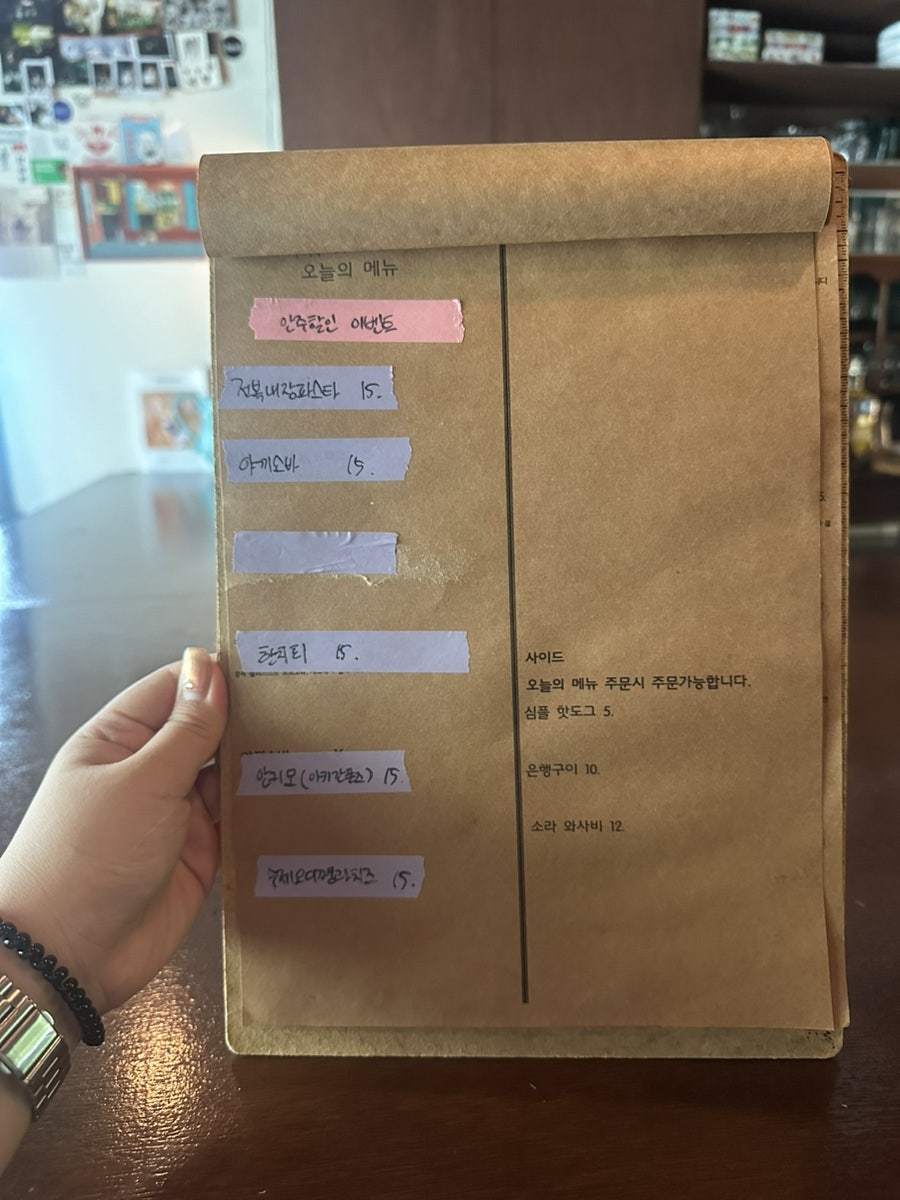 오늘의 메뉴
안주할인 이벤트
전복내장파스타 15.
야끼소바 15.
한치티 15.
안키모(아귀간폰즈) 15.
수제오디잼과치즈 15.
사이드
오늘의 메뉴 주문시 주문가능합니다.
심플 핫도그 5.
은행구이 10.
소라 와사비 12.